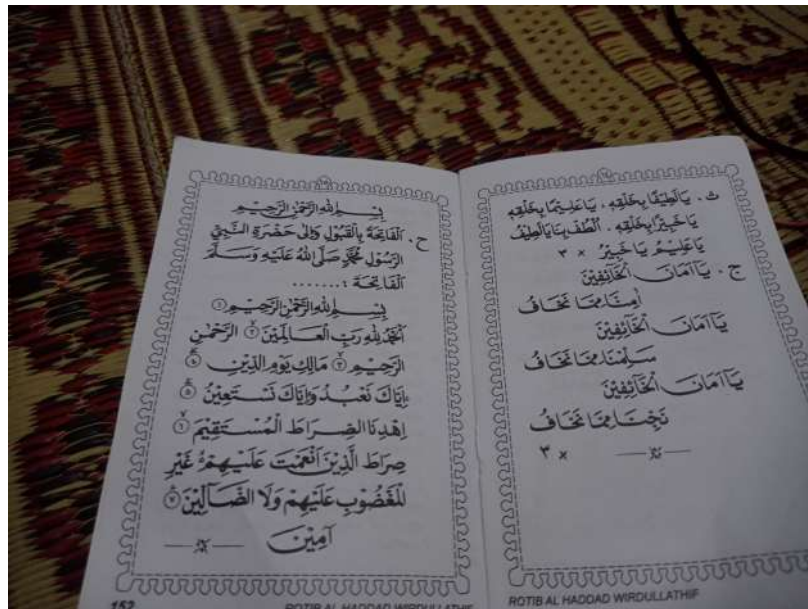 ث . يَالَطِيْفًا بِخَلْقِهِ . يَاعَلِيْمًا بِخَلْقِهِ
يَاخَبِيْرًا بِخَلْقِهِ . اُلْطُفْ بِنَا يَالَطِيْفُ
يَاعَلِيْمُ يَاخَبِيْرُ × ٣
ج . يَآ اَمَانَ الْخَآئِفِيْنَ
اٰمِنَّا مِمَّا نَخَافُ
يَآ اَمَانَ الْخَآئِفِيْنَ
سَلِّمْنَا مِمَّا نَخَافُ
يَآ اَمَانَ الْخَآئِفِيْنَ
نَجِّنَا مِمَّا نَخَافُ
× ٣
ROTIB AL HADDAD WIRDULLATHIF
بِسْمِ اللهِ الرَّحْمٰنِ الرَّحِيْمِ
ح . اَلْفَاتِحَةَ بِالْقَبُوْلِ وَاِلَى حَضْرَةِ النَّبِيِّ
الرَّسُوْلِ مُحَمَّدٍ صَلَّى اللهُ عَلَيْهِ وَسَلَّمَ
اَلْفَاتِحَةَ : .......
بِسْمِ اللهِ الرَّحْمٰنِ الرَّحِيْمِ ①
اَلْحَمْدُ لِلّٰهِ رَبِّ الْعَالَمِيْنَ ② الرَّحْمٰنِ
الرَّحِيْمِ ③ مَالِكِ يَوْمِ الدِّيْنِ ④
اِيَّاكَ نَعْبُدُ وَاِيَّاكَ نَسْتَعِيْنُ ⑤
اِهْدِنَا الصِّرَاطَ الْمُسْتَقِيْمَ ⑥
صِرَاطَ الَّذِيْنَ اَنْعَمْتَ عَلَيْهِمْ غَيْرِ
الْمَغْضُوْبِ عَلَيْهِمْ وَلَا الضَّآلِّيْنَ ⑦
آمِيْنَ
152 ROTIB AL HADDAD WIRDULLATHIF